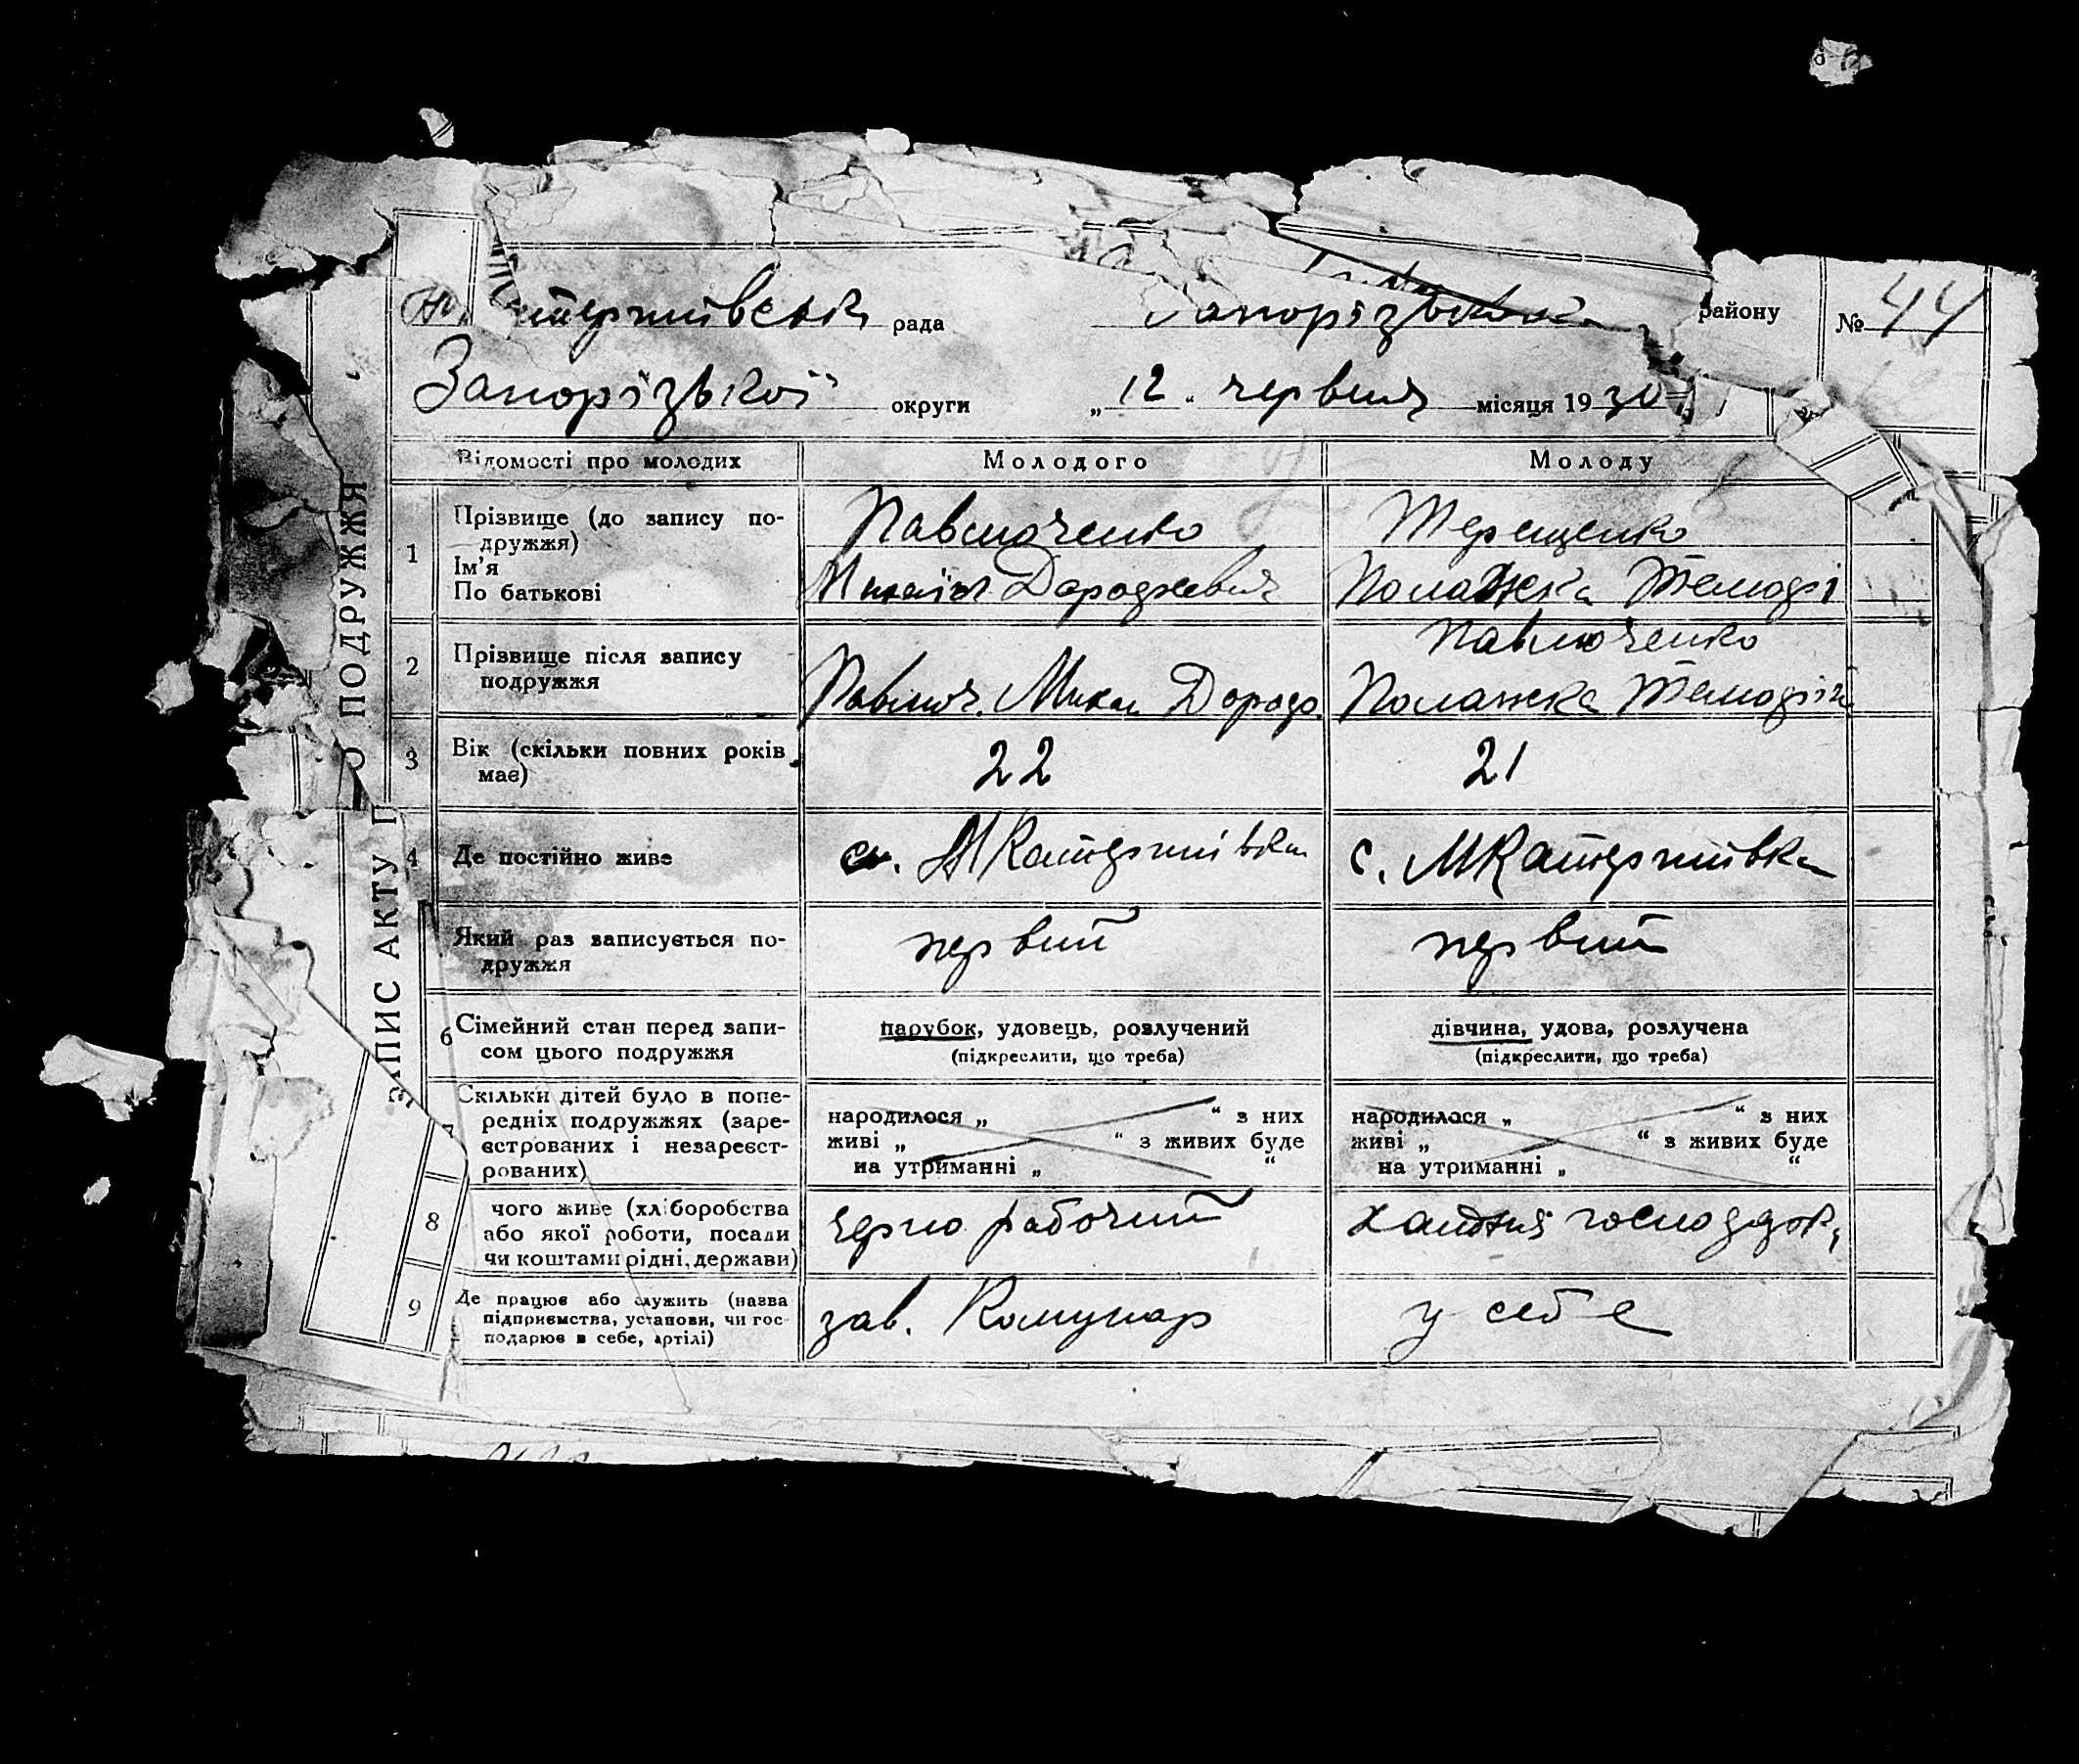 рада району № 44
Запорізької округи „ 12 “ червня місяця 1930
ЗАПИС АКТУ ПРО ПОДРУЖЖЯ
Відомості про молодих Молодого Молоду
1 Прізвище (до запису по-
дружжя)
Ім'я
По батькові
Павлюченко Терещенко
2 Прізвище після запису
подружжя
Павлюч. Микол Дородо. Павлюченко
3 Вік (скільки повних років
має)
22 21
4 Де постійно живе
с. МКатеринівка с. МКатеринівка
Який раз записується по-
дружжя
первий первий
6 Сімейний стан перед запи-
сом цього подружжя
парубок, удовець, розлучений дівчина, удова, розлучена
(підкреслити, що треба) (підкреслити, що треба)
7 Скільки дітей було в попе-
редніх подружжях (заре-
єстрованих і незареєст-
рованих)
народилося „ “ з них народилося „ “ з них
живі „ “ з живих буде живі „ “ з живих буде
на утриманні „ “ на утриманні „ “
8 чого живе (хліборобства
або якої роботи, посади
чи коштами рідні, держави)
черно рабочий
9 Де працює або служить (назва
підприємства, установи, чи гос-
подарює в себе, артілі)
зав. Комунар у себе